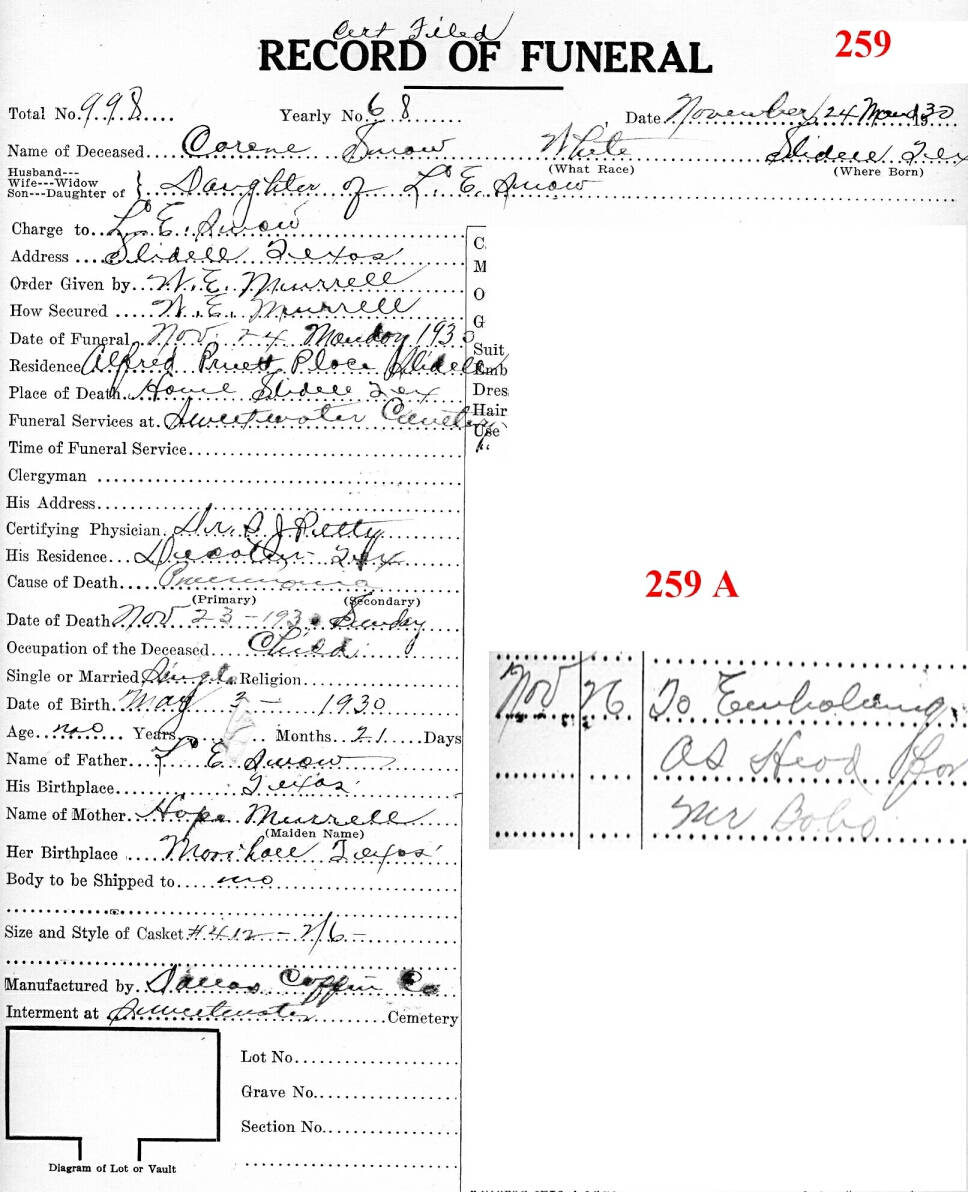 Cert Filed
RECORD OF FUNERAL
259
Total No. 998 Yearly No. 68 Date November 24 Mond 1930
Name of Deceased Corene Snow White Slidell Tex
(What Race) (Where Born)
Husband---
Wife---Widow
Son---Daughter of } Daughter of L. E. Snow
Charge to L. E. Snow
Address Slidell Texas
Order Given by W. E. Murrell
How Secured W. E. Murrell
Date of Funeral Nov. 24 Monday 1930
Residence Alfred Pruett Place Slidell
Place of Death Home Slidell Tex
Funeral Services at Sweetwater Cemetery
Time of Funeral Service
Clergyman
His Address
Certifying Physician Dr. S J Petty
His Residence Decatur Tex
Cause of Death Pneumonia
(Primary) (Secondary)
Date of Death Nov 23-1930 Sunday
Occupation of the Deceased Child
Single or Married Single Religion
Date of Birth May 3 - 1930
Age no Years Months 21 Days
Name of Father L E Snow
His Birthplace Texas
Name of Mother Hope Murrell
(Maiden Name)
Her Birthplace Marshall Texas
Body to be Shipped to no
Size and Style of Casket #412 - 2/6 -
Manufactured by Dallas Coffin Co
Interment at Sweetwater Cemetery
Lot No.
Grave No.
Section No.
Diagram of Lot or Vault
C
M
O
G
Suit
Emb
Dres
Hair
Use
259 A
Nov 26 To Embalming
as Head for
Mr Bobo